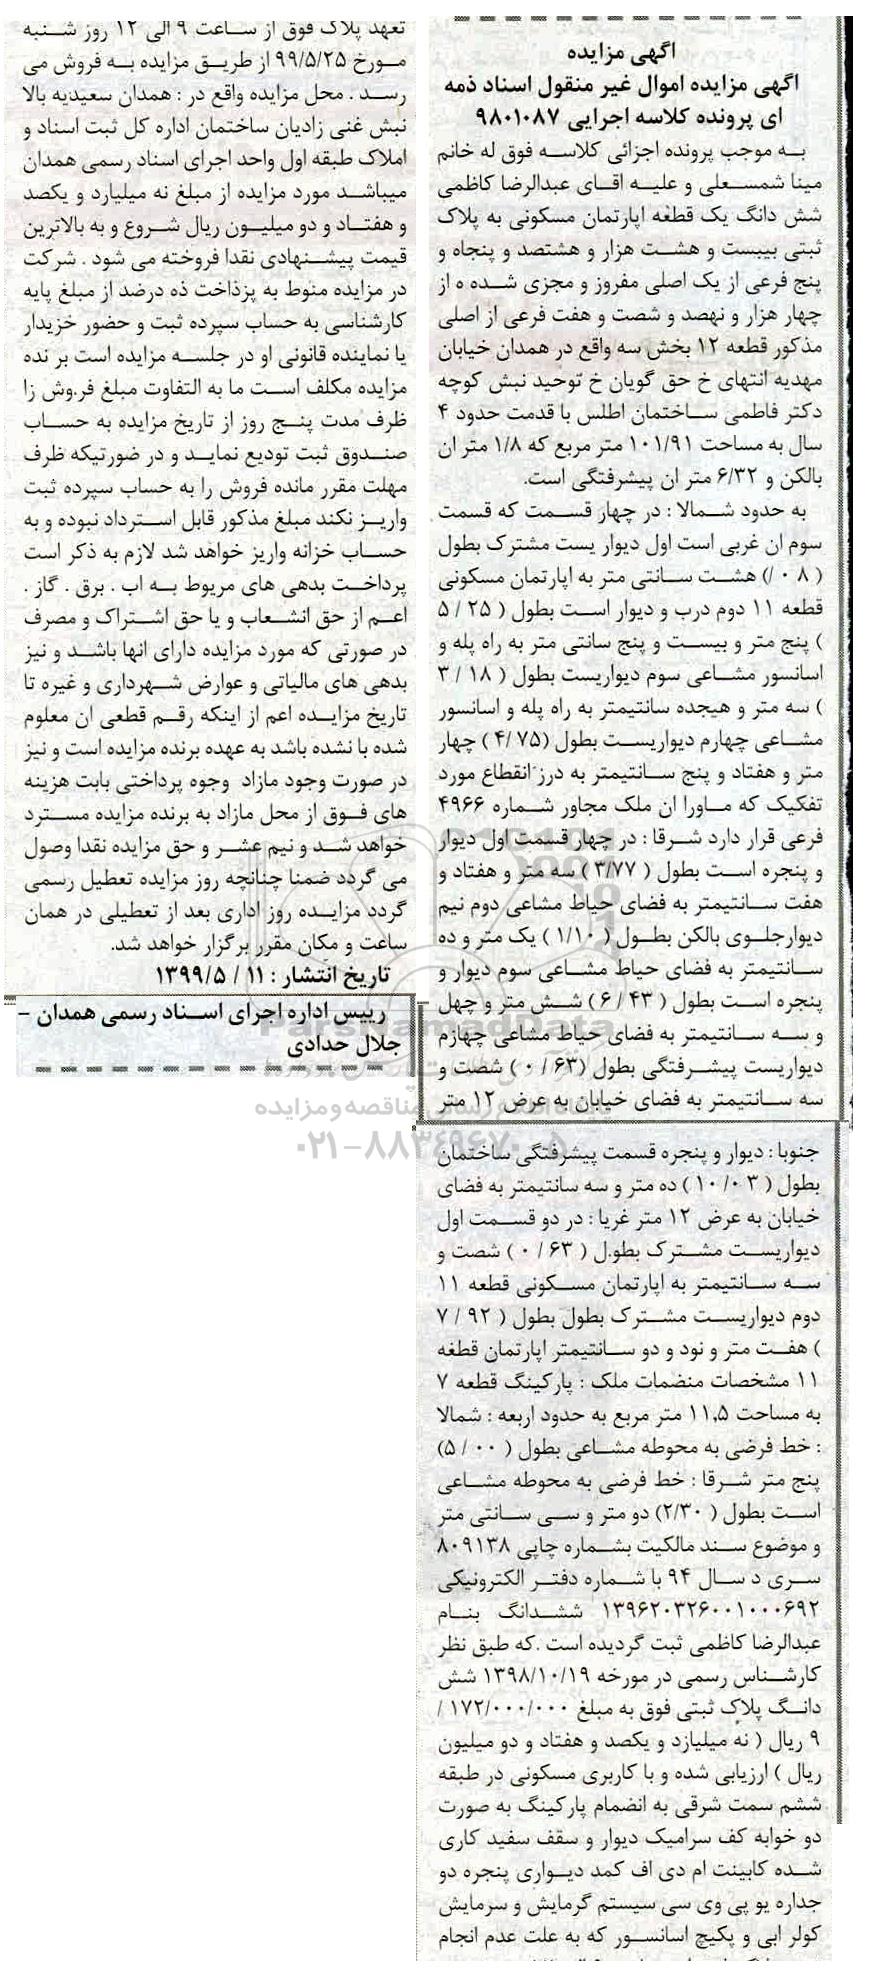 آگهی مزایده
اگهی مزایده اموال غیر منقول اسناد ذمه
ای پرونده کلاسه اجرایی ۹۸۰۱۰۸۷
به موجب پرونده اجزائی کلاسه فوق له خانم
مینا شمسعلی و علیه اقای عبدالرضا کاظمی
شش دانگ یک قطعه اپارتمان مسکونی به پلاک
ثبتی بییست و هشت هزار و هشتصد و پنجاه و
پنج فرعی از یک اصلی مفروز و مجزی شده ه از
چهار هزار و نهصد و شصت و هفت فرعی از اصلی
مذکور قطعه ۱۲ بخش سه واقع در همدان خیابان
مهدیه انتهای خ حق گویان خ توحید نبش کوچه
دکتر فاطمی ساختمان اطلس با قدمت حدود ۴
سال به مساحت ۱۰۱/۹۱ متر مربع که ۱/۸ متر ان
بالکن و ۶/۳۲ متر ان پیشرفتگی است.
به حدود شمالا : در چهار قسمت که قسمت
سوم ان غربی است اول دیوار یست مشترک بطول
( ۰۸ /) هشت سانتی متر به اپارتمان مسکونی
قطعه ۱۱ دوم درب و دیوار است بطول ( ۲۵ / ۵
) پنج متر و بیست و پنج سانتی متر به راه پله و
اسانسور مشاعی سوم دیواریست بطول ( ۱۸ / ۳
) سه متر و هیجده سانتیمتر به راه پله و اسانسور
مشاعی چهارم دیواریست بطول (۴/۷۵ ) چهار
متر و هفتاد و پنج سانتیمتر به درز انقطاع مورد
تفکیک که ماورا ان ملک مجاور شماره ۴۹۶۶
فرعی قرار دارد شرقا : در چهار قسمت اول دیوار
و پنجره است بطول ( ۳/۷۷ ) سه متر و هفتاد و
هفت سانتیمتر به فضای حیاط مشاعی دوم نیم
دیوارجلوی بالکن بطول ( ۱/۱۰ ) یک متر و ده
سانتیمتر به فضای حیاط مشاعی سوم دیوار و
پنجره است بطول ( ۴۳ / ۶ ) شش متر و چهل
و سه سانتیمتر به فضای حیاط مشاعی چهارم
دیواریست پیشرفتگی بطول (۶۳ / ۰ ) شصت و
سه سانتیمتر به فضای خیابان به عرض ۱۲ متر
جنوبا : دیوار و پنجره قسمت پیشرفتگی ساختمان
بطول ( ۰۳ /۱۰ ) ده متر و سه سانتیمتر به فضای
خیابان به عرض ۱۲ متر غربا : در دو قسمت اول
دیواریست مشترک بطول ( ۶۳ / ۰ ) شصت و
سه سانتیمتر به اپارتمان مسکونی قطعه ۱۱
دوم دیواریست مشترک بطول بطول ( ۹۲ / ۷
) هفت متر و نود و دو سانتیمتر اپارتمان قطعه
۱۱ مشخصات منضمات ملک : پارکینگ قطعه ۷
به مساحت ۱۱,۵ متر مربع به حدود اربعه : شمالا
: خط فرضی به محوطه مشاعی بطول ( ۰۰ / ۵)
پنج متر شرقا : خط فرضی به محوطه مشاعی
است بطول ( ۲/۳۰) دو متر و سی سانتی متر
و موضوع سند مالکیت بشماره چاپی ۸۰۹۱۳۸
سری د سال ۹۴ با شماره دفتر الکترونیکی
۱۳۹۶۲۰۳۲۶۰۰۱۰۰۰۶۹۲ ششدانگ بنام
عبدالرضا کاظمی ثبت گردیده است .که طبق نظر
کارشناس رسمی در مورخه ۱۳۹۸/۱۰/۱۹ شش
دانگ پلاک ثبتی فوق به مبلغ ۱۷۲/۰۰۰/۰۰۰ /
۹ ریال ( نه میلیازد و یکصد و هفتاد و دو میلیون
ریال ) ارزیابی شده و با کاربری مسکونی در طبقه
ششم سمت شرقی به انضمام پارکینگ به صورت
دو خوابه کف سرامیک دیوار و سقف سفید کاری
شده کابینت ام دی اف کمد دیواری پنجره دو
جداره یو پی وی سی سیستم گرمایش و سرمایش
کولر ابی و پکیچ اسانسور که به علت عدم انجام
تعهد پلاک فوق از ساعت ۹ الی ۱۲ روز شنبه
مورخ ۹۹/۵/۲۵ از طریق مزایده به فروش می
رسد . محل مزایده واقع در : همدان سعیدیه بالا
نبش غنی زادیان ساختمان اداره کل ثبت اسناد و
املاک طبقه اول واحد اجرای اسناد رسمی همدان
میباشد مورد مزایده از مبلغ نه میلیارد و یکصد
و هفتاد و دو میلیون ریال شروع و به بالاترین
قیمت پیشنهادی نقدا فروخته می شود . شرکت
در مزایده منوط به پزذاخت ذه درضد از مبلغ پایه
کارشناسی به حساب سپرده ثبت و حضور خزیدار
یا نماینده قانونی او در جلسه مزایده است بر نده
مزایده مکلف است ما به التفاوت مبلغ فروش زا
ظرف مدت پنج روز از تاریخ مزایده به حساب
صندوق ثبت تودیع نماید و در ضورتیکه ظرف
مهلت مقرر مانده فروش را به حساب سپرده ثبت
واریز نکند مبلغ مذکور قابل استرداد نبوده و به
حساب خزانه واریز خواهد شد لازم به ذکر است
پرداخت بدهی های مربوط به اب . برق . گاز .
اعم از حق انشعاب و یا حق اشتراک و مصرف
در صورتی که مورد مزایده دارای انها باشد و نیز
بدهی های مالیاتی و عوارض شهرداری و غیره تا
تاریخ مزایده اعم از اینکه رقم قطعی ان معلوم
شده با نشده باشد به عهده برنده مزایده است و نیز
در صورت وجود مازاد وجوه پرداختی بابت هزینه
های فوق از محل مازاد به برنده مزایده مسترد
خواهد شد و نیم عشر و حق مزایده نقدا وصول
می گردد ضمنا چنانچه روز مزایده تعطیل رسمی
گردد مزایده روز اداری بعد از تعطیلی در همان
ساعت و مکان مقرر برگزار خواهد شد.
تاریخ انتشار : ۱۱ / ۱۳۹۹/۵
رییس اداره اجرای اسناد رسمی همدان –
جلال حدادی
ParsNamadData
پایگاه اطلاع رسانی مناقصه و مزایده
۰۲۱-۸۸۳۴۹۶۷۰-۵